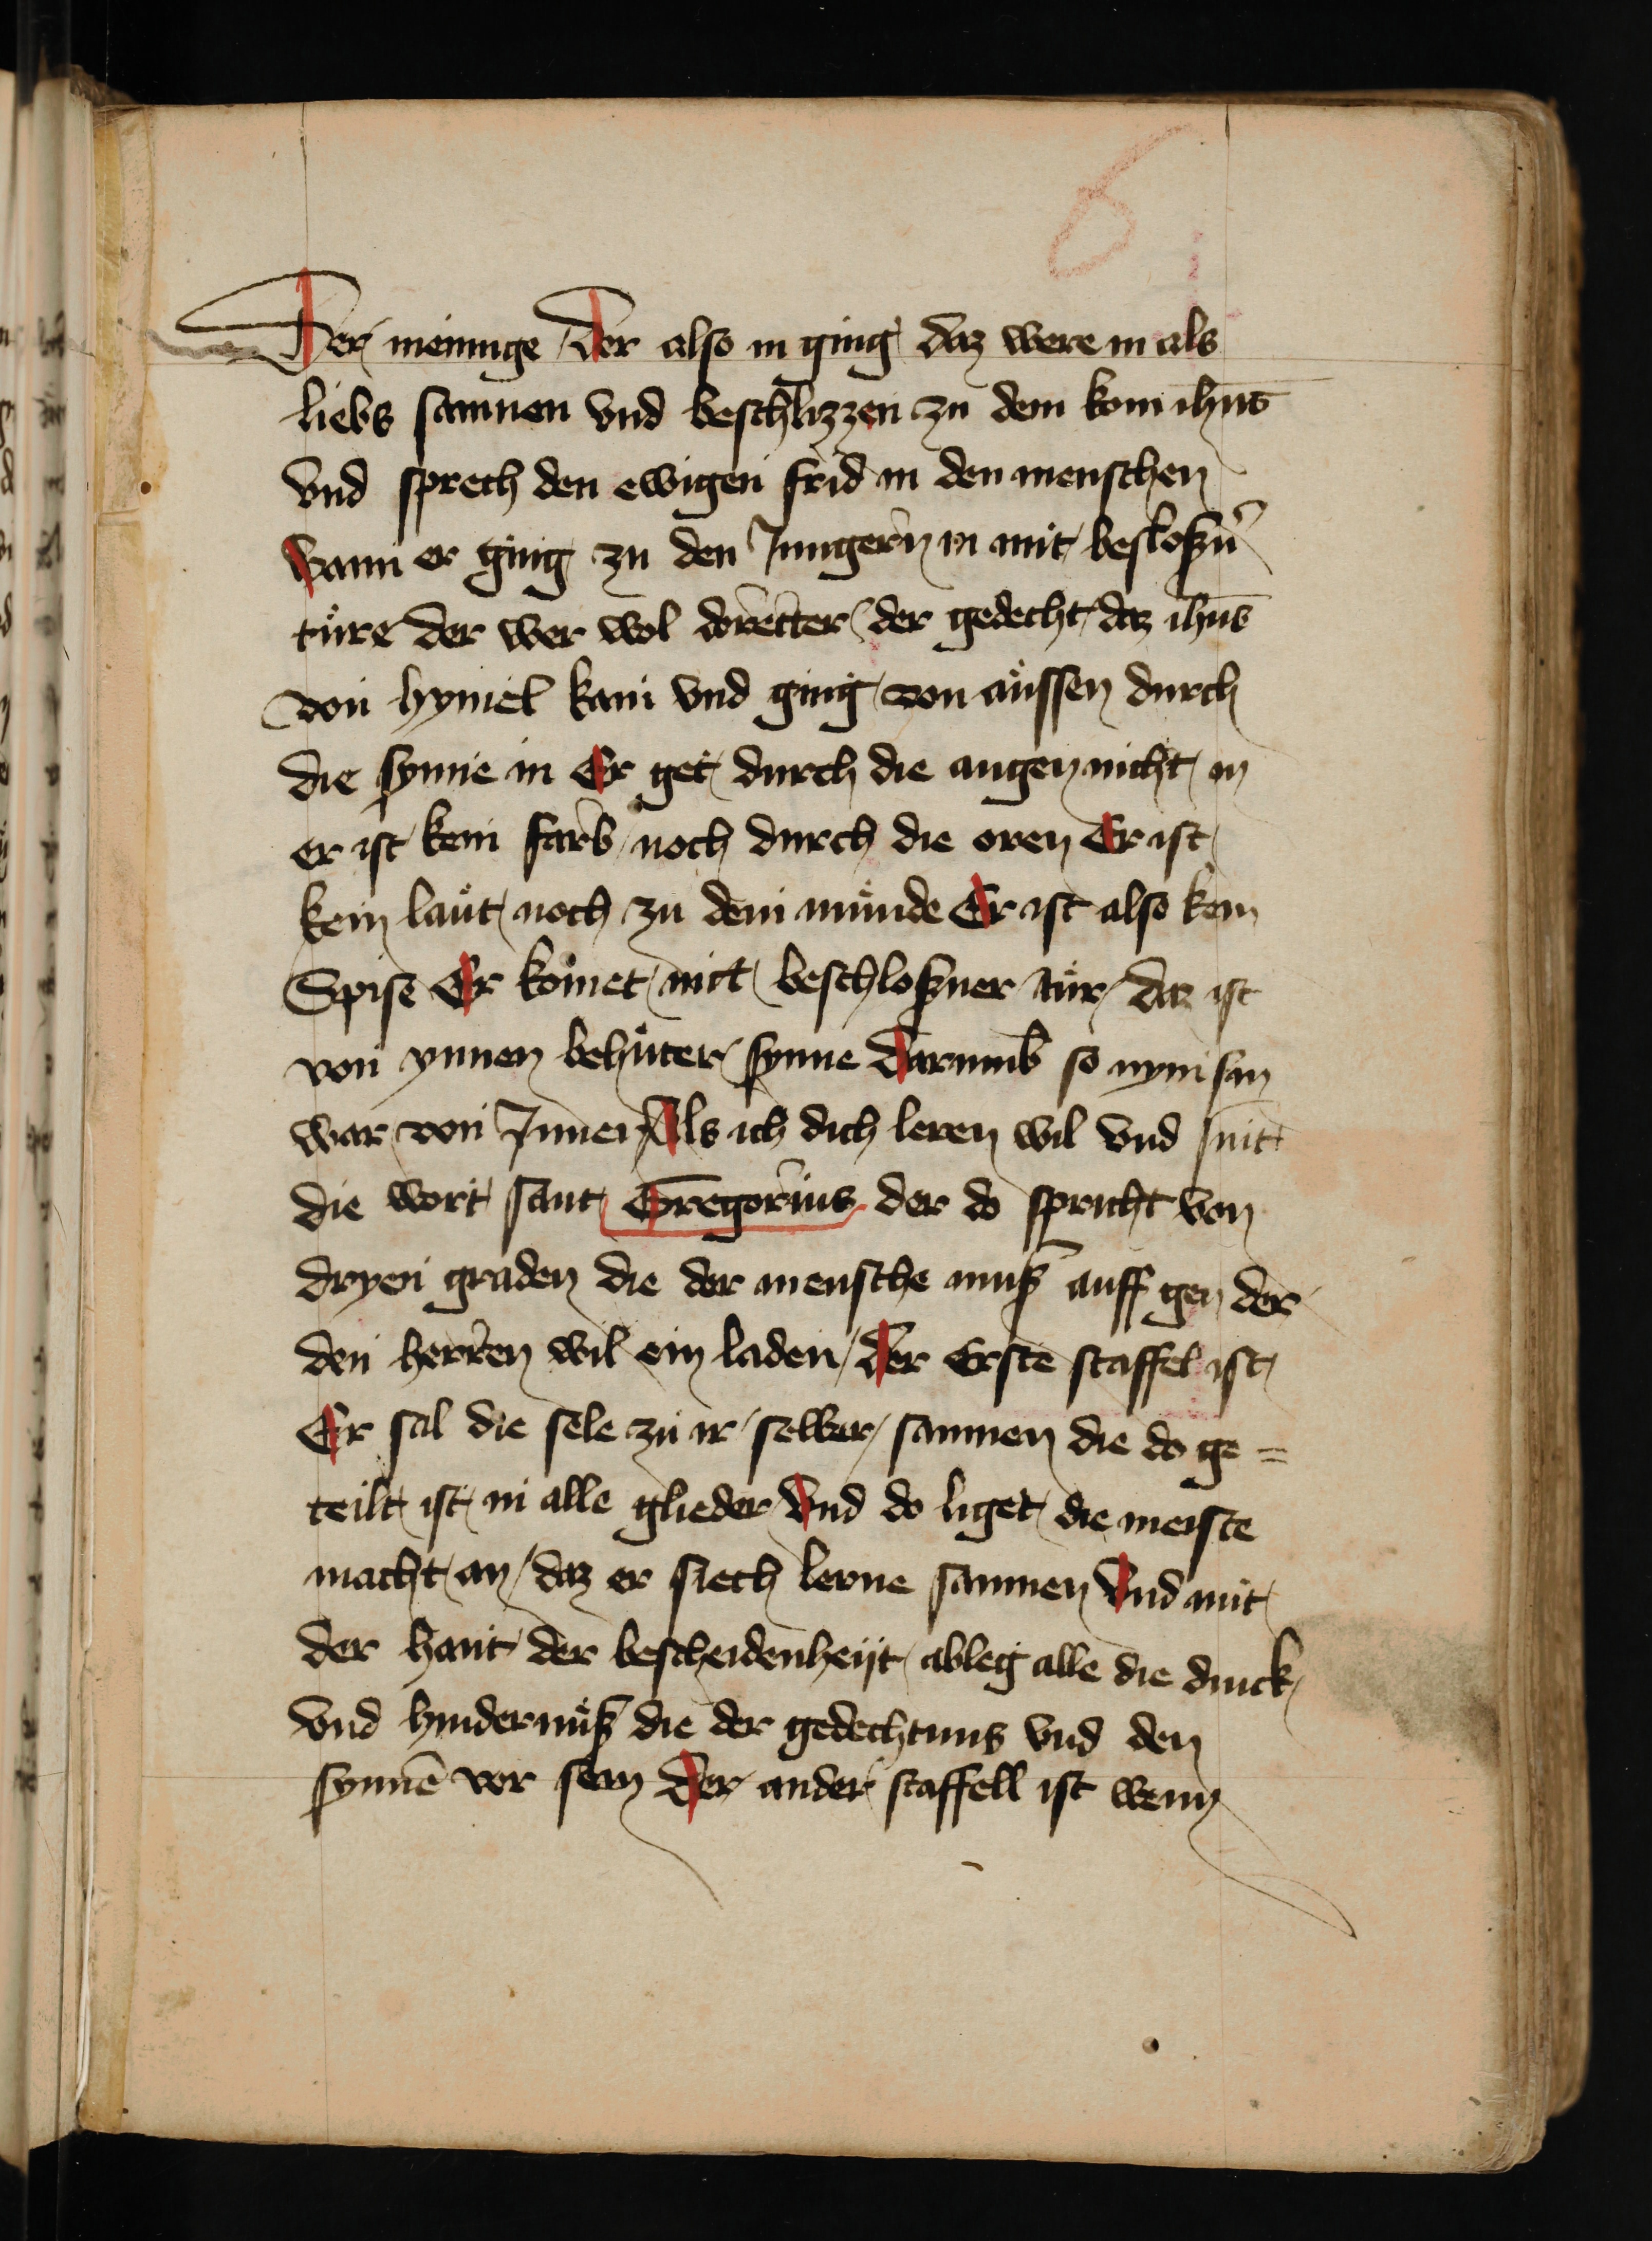 6
Der meinunge Der also in ging daz were in als
liebs samnen vnd beschlizzen zu dem kom ihus̄
vnd sprech den ewigen frid in den menschen
Wann er ging zu den Jungern in mit besloßn̄
tu̇re der wer wol der gedecht daz ihus̄
von hymel kam vnd ging von aüssen durch
die synne in Er get durch die augen nicht in
er ist kein farb noch durch die oren Er ist
kein laüt noch zu dem münde Er ist also kein
Spise Er kömet mit beschloßner tür daz ist
von ynnen behüter synne Darumb so nym san
war von Jnnen Als ich dich leren wil vnd mit
die wort sant Gregorius der do spricht von
dryen graden die der mensche muß auff gen der
den herren wil ein laden Der Erste staffel ist
Er sal die sele zu ir selber samnen die do ge=
teilt ist in alle glieder Vnd do liget die meiste
macht an daz er siech lerne samnen Vnd mit
der hant der bescheidenheyt ableg alle die druck
vnd hindernüß die der gedechtnus vnd den
synnē vor sein Der ander staffell ist wenn